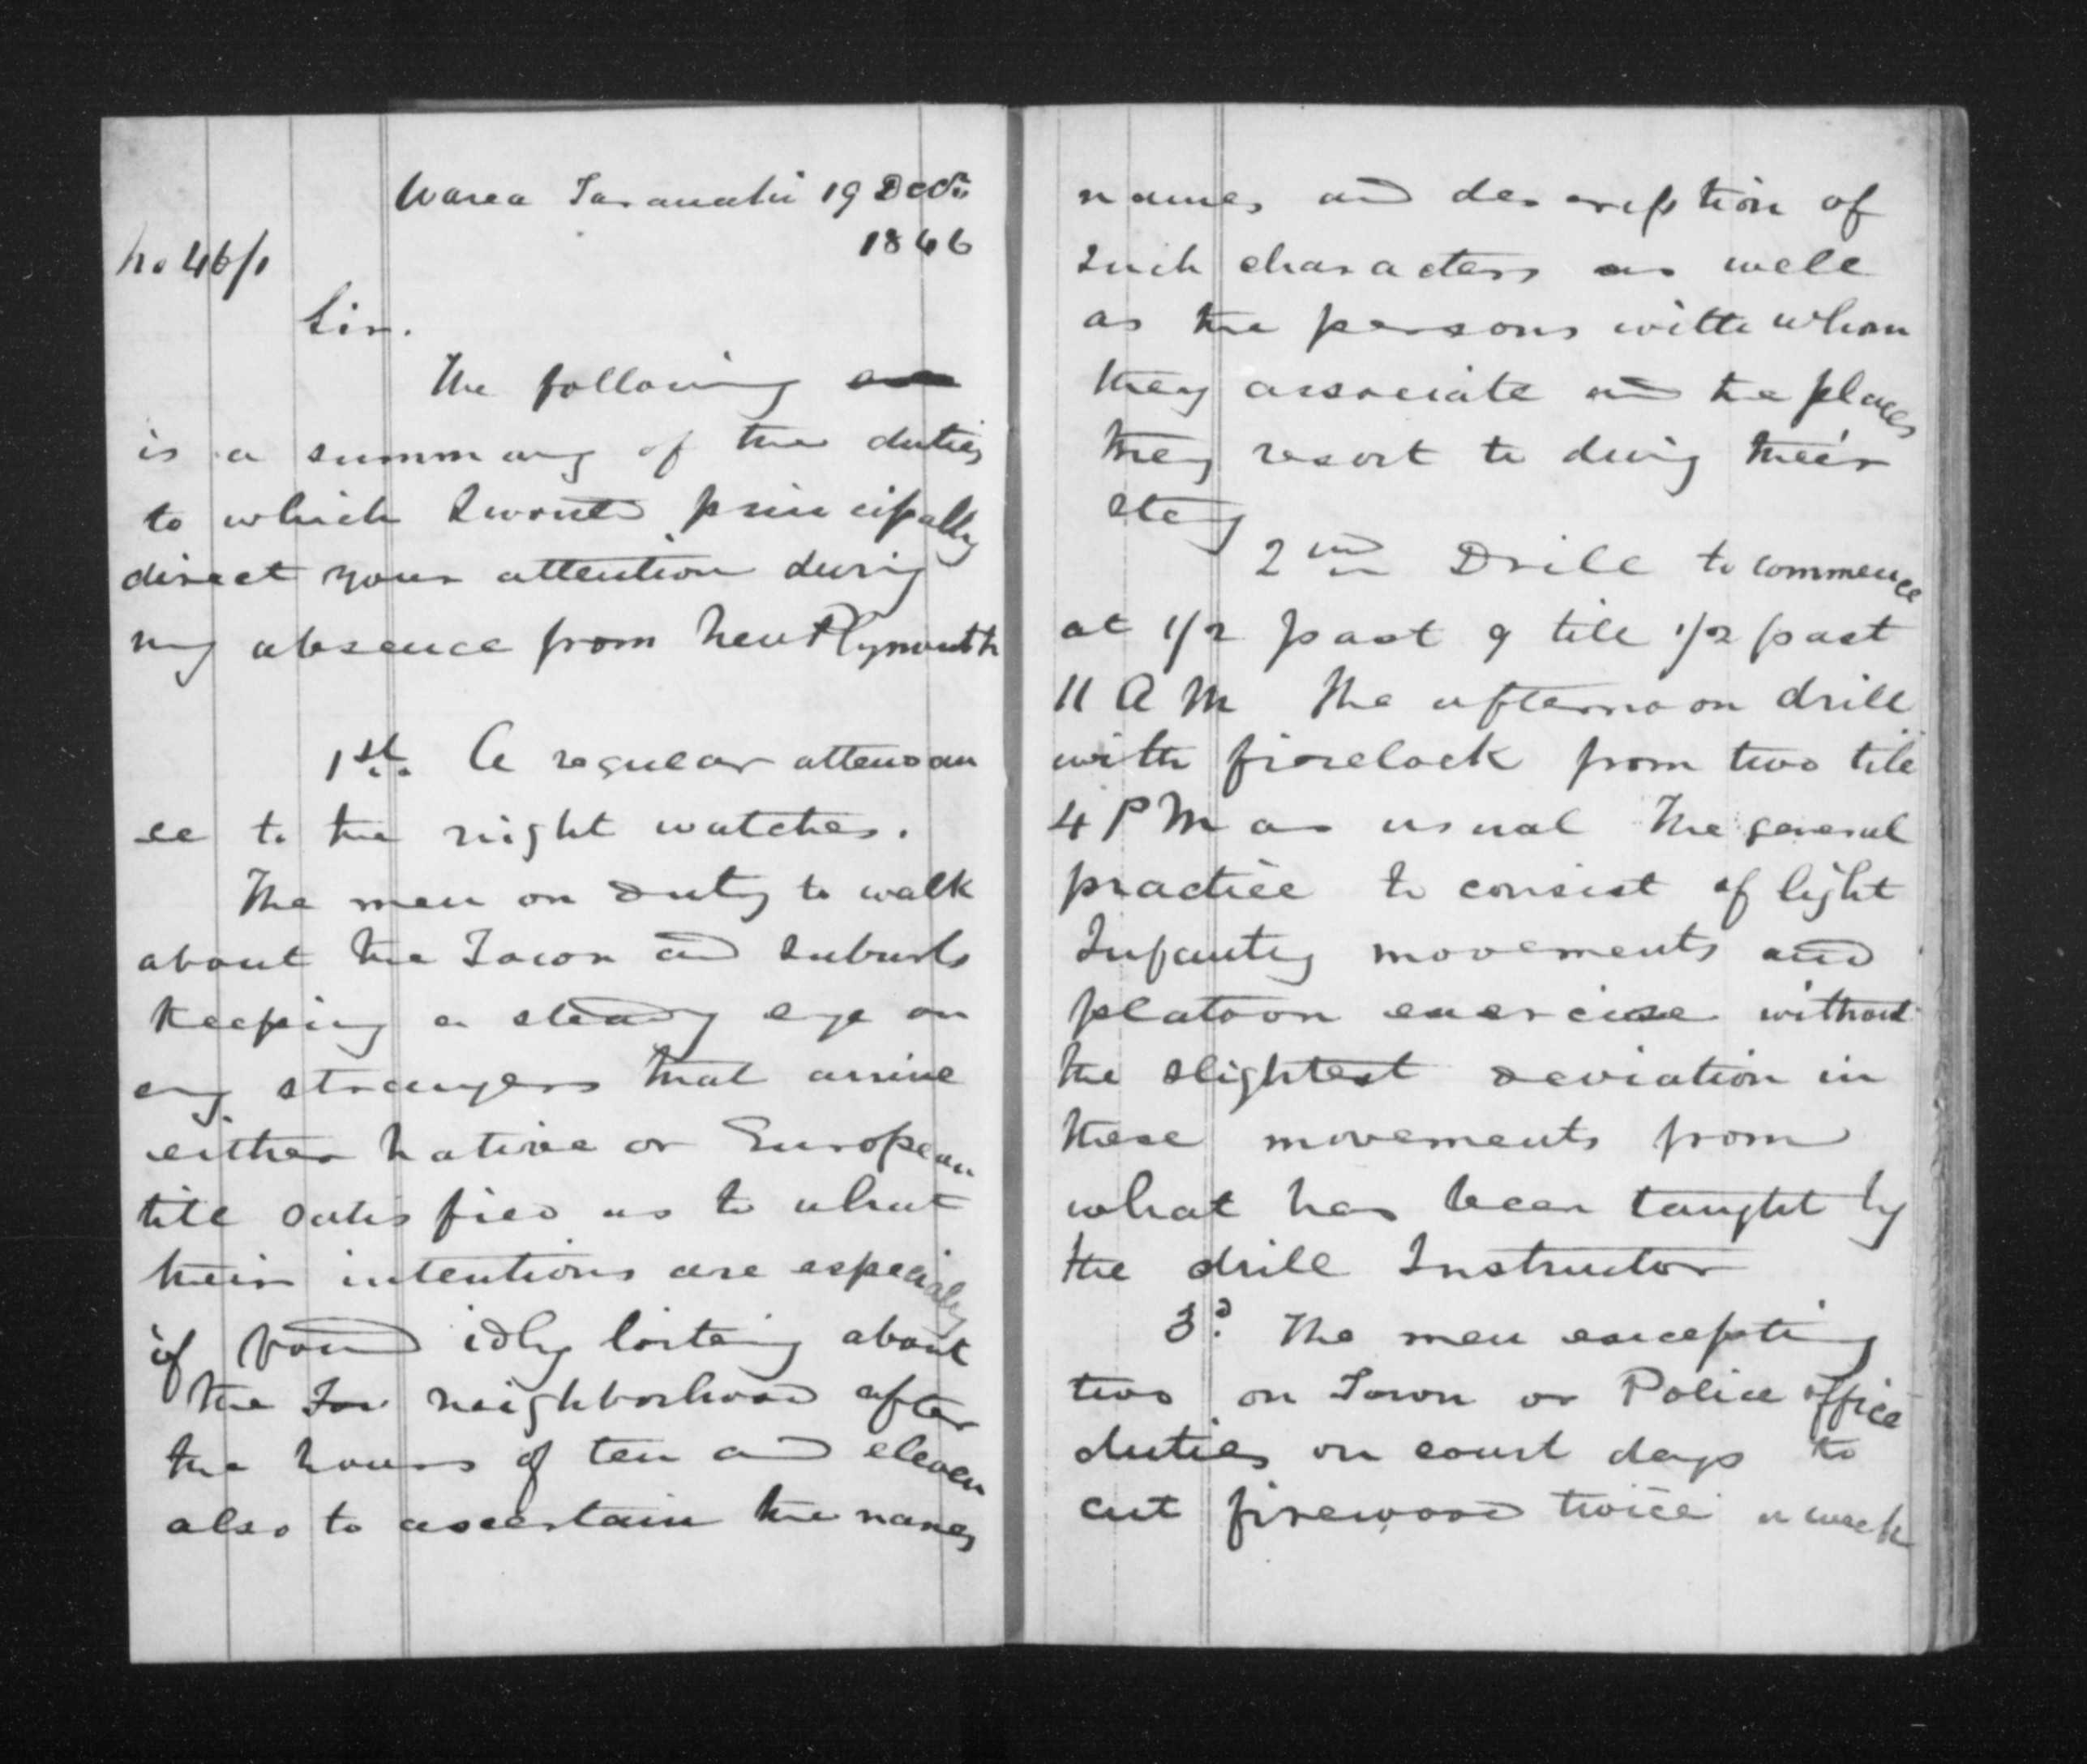 Warea Taranaki 19 Decr.
1846
No 46/1
Sir.
The following
is a summary of the duties
to which I would principally
direct your attention during
my absence from New Plymouth
1st. A regular attendan
ce to the night watches.
The men on duty to walk
about the Town and suburbs
keeping a steady eye on
any strangers that arrive
either Native or European
till satisfied as to what
their intentions are especialy
if found idly loitering about
the Tow neighborhood after
the hours of ten and eleven
also to ascertain the names
names and description of
such characters as well
as the persons with whom
they associate and the places
they resort to durig their
stay
2nd Drill to commence
at 1/2 past 9 till 1/2 past
11 A M The afternoon drill
with firelock from two till
4 P M as usual The general
practice to consist of light
Infantry movements and
platoon exercise without
the slightest deviation in
these movements from
what has been taught by
the drill Instructor
3d. The men excepting
two on Town or Police office
duties on court days to
cut firewood twice a week